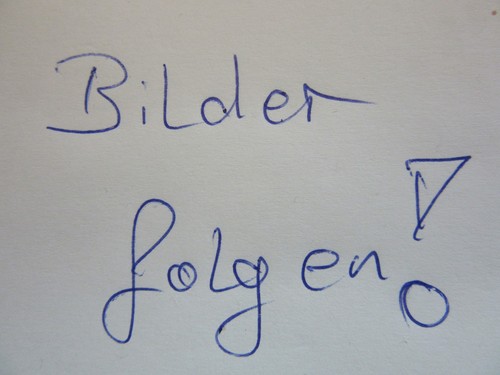 Bilder
folgen!